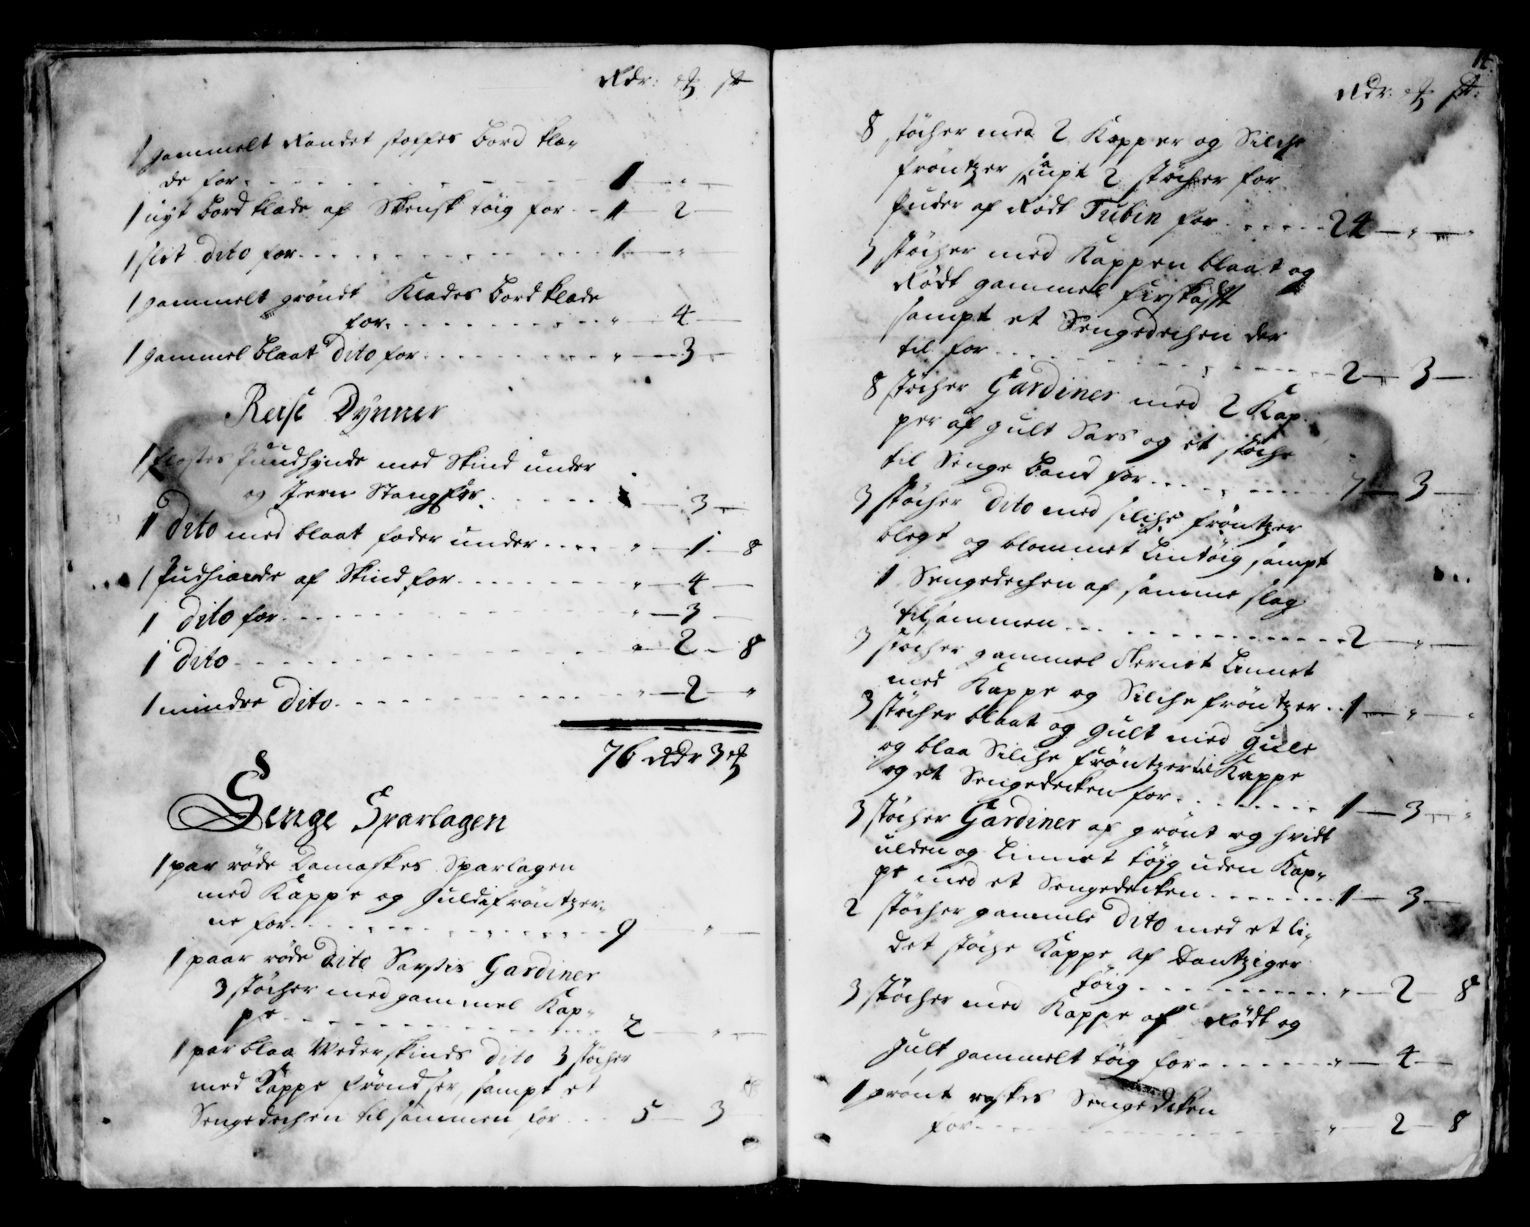 Rdr: ȝ ß
1 gammelt Randet stoffes Bord klæ-
de for 1 — " —
1 nÿt Bord klæde af Skensk tøig for 1 — 2 —
1 slet dito for 1 — " —
1 gammelt grøndt Klædes Bord klæde
for " — 4 —
1 gammel blaat dito for " — 3 —
Reise Dÿnner
1 Puudhÿnde med Skind under
og Jern Stang for 3 —
1 Dito med blaat foder under " — 1 — 8
1 af Skind for " — 4 —
1 dito for " — 3 —
1 Dito " — 2 — 8
1 mindre dito " — 2 — "
76 Rdr 3
Senge Sparlagen
1 par røde Damaskes Sparlagen
med Kappe og Guldefrøntzer-
ne for 9 — " —
1 paar røde dito Gardiner
3 støcher med gammel Kap-
pe 2 — " —
1 par blaa dito 3 støcher
med Kappe frøndser, sampt et
Sengedechen tilsammen for 5 — 3
Rdr: ȝ ß:
8 støcher med 2 Kapper og Silche
frøntzer sampt 2 støcher for
Puder af Rødt Tubin for 24 — " — "
3 støcher med Kappen blaat og
Rødt gammel
sampt et Sengedechen der
til for 2 — 3 —
8 støcher Gardiner med 2 Kap-
per af gult Sars og et støche
til Senge Baand for 7 — 3 —
3 støcher dito med silche frøntzer
blegt og blommet Lintøig, sampt
1 Sengedechen af samme slag
tilsammen 2 — " —
3 støcher gammel Linnet
med Kappe og Silche frøntzer 1 — " — "
3 støcher blaat og gult med gule
og blaa Silche frøntzer til Kappe
og et Sengedecken for 1 — 3 — "
3 støcher Gardiner af grønt og hvidt
ulden og Linnet tøjg uden Kap-
pe med et Sengedecken 1 — 3 —
2 støcher gammle dito med et li-
det støche Kappe af Dantziger
tøig " — 2 — 8
3 støcher med Kappe af Rødt og
gult gammelt tøig for " — 4 —
1 grønt Sengedecken
for " — 2 — 8